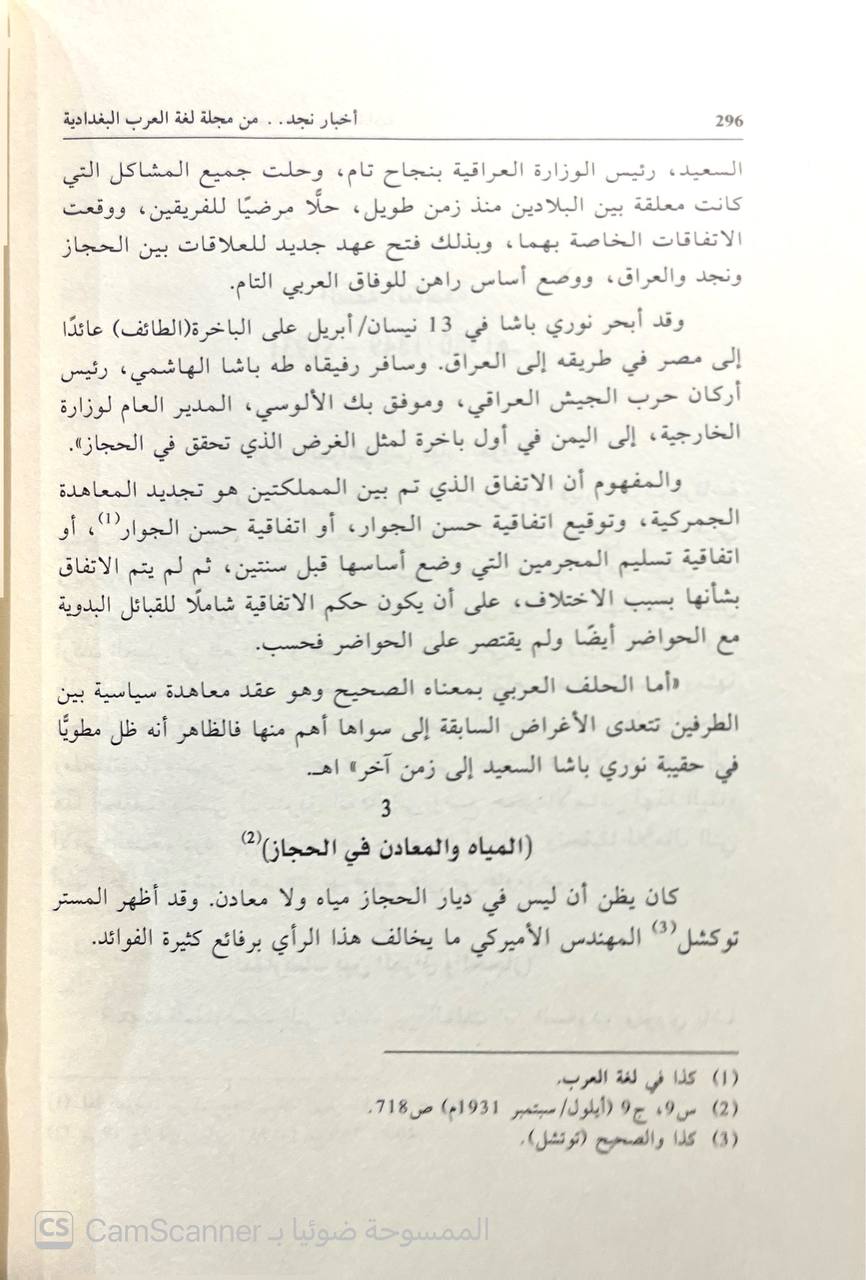 296
أخبار نجد.. من مجلة لغة العرب البغدادية
السعيد، رئيس الوزارة العراقية بنجاح تام، وحلت جميع المشاكل التي
كانت معلقة بين البلادين منذ زمن طويل، حلًّا مرضيًا للفريقين، ووقعت
الاتفاقات الخاصة بهما، وبذلك فتح عهد جديد للعلاقات بين الحجاز
ونجد والعراق، ووضع أساس راهن للوفاق العربي التام.
وقد أبحر نوري باشا في 13 نيسان/أبريل على الباخرة(الطائف) عائدًا
إلى مصر في طريقه إلى العراق. وسافر رفيقاه طه باشا الهاشمي، رئيس
أركان حرب الجيش العراقي، وموفق بك الألوسي، المدير العام لوزارة
الخارجية، إلى اليمن في أول باخرة لمثل الغرض الذي تحقق في الحجاز».
والمفهوم أن الاتفاق الذي تم بين المملكتين هو تجديد المعاهدة
الجمركية، وتوقيع اتفاقية حسن الجوار، أو اتفاقية حسن الجوار(1)، أو
اتفاقية تسليم المجرمين التي وضع أساسها قبل سنتين، ثم لم يتم الاتفاق
بشأنها بسبب الاختلاف، على أن يكون حكم الاتفاقية شاملًا للقبائل البدوية
مع الحواضر أيضًا ولم يقتصر على الحواضر فحسب.
«أما الحلف العربي بمعناه الصحيح وهو عقد معاهدة سياسية بين
الطرفين تتعدى الأغراض السابقة إلى سواها أهم منها فالظاهر أنه ظل مطويًّا
في حقيبة نوري باشا السعيد إلى زمن آخر» اهـ.
3
(المياه والمعادن في الحجاز)(2)
كان يظن أن ليس في ديار الحجاز مياه ولا معادن. وقد أظهر المستر
توكشل(3) المهندس الأميركي ما يخالف هذا الرأي برفائع كثيرة الفوائد.
(1) كذا في لغة العرب.
(2) س9، ج9 (أيلول/سبتمبر 1931م) ص718.
(3) كذا والصحيح (توتشل).
CS CamScanner الممسوحة ضوئيا بـ